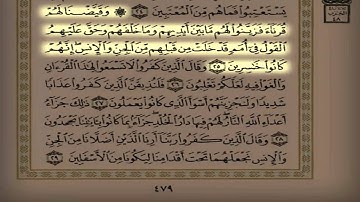 يَسْتَعْتِبُوا۟ فَمَا هُم مِّنَ ٱلْمُعْتَبِينَ ٢٤ ۞ وَقَيَّضْنَا لَهُمْ
قُرَنَآءَ فَزَيَّنُوا۟ لَهُم مَّا بَيْنَ أَيْدِيهِمْ وَمَا خَلْفَهُمْ وَحَقَّ عَلَيْهِمُ
ٱلْقَوْلُ فِىٓ أُمَمٍ قَدْ خَلَتْ مِن قَبْلِهِم مِّنَ ٱلْجِنِّ وَٱلْإِنسِ إِنَّهُمْ
كَانُوا۟ خَـٰسِرِينَ ٢٥ وَقَالَ ٱلَّذِينَ كَفَرُوا۟ لَا تَسْمَعُوا۟ لِهَـٰذَا ٱلْقُرْءَانِ
وَٱلْغَوْا۟ فِيهِ لَعَلَّكُمْ تَغْلِبُونَ ٢٦ فَلَنُذِيقَنَّ ٱلَّذِينَ كَفَرُوا۟ عَذَابًا
شَدِيدًا وَلَنَجْزِيَنَّهُمْ أَسْوَأَ ٱلَّذِى كَانُوا۟ يَعْمَلُونَ ٢٧ ذَٰلِكَ جَزَآءُ
أَعْدَآءِ ٱللَّهِ ٱلنَّارُ لَهُمْ فِيهَا دَارُ ٱلْخُلْدِ جَزَآءًۢ بِمَا كَانُوا۟ بِـَٔايَـٰتِنَا يَجْحَدُونَ
٢٨ وَقَالَ ٱلَّذِينَ كَفَرُوا۟ رَبَّنَآ أَرِنَا ٱلَّذَيْنِ أَضَلَّانَا مِنَ ٱلْجِنِّ
وَٱلْإِنسِ نَجْعَلْهُمَا تَحْتَ أَقْدَامِنَا لِيَكُونَا مِنَ ٱلْأَسْفَلِينَ ٢٩
٤٧٩